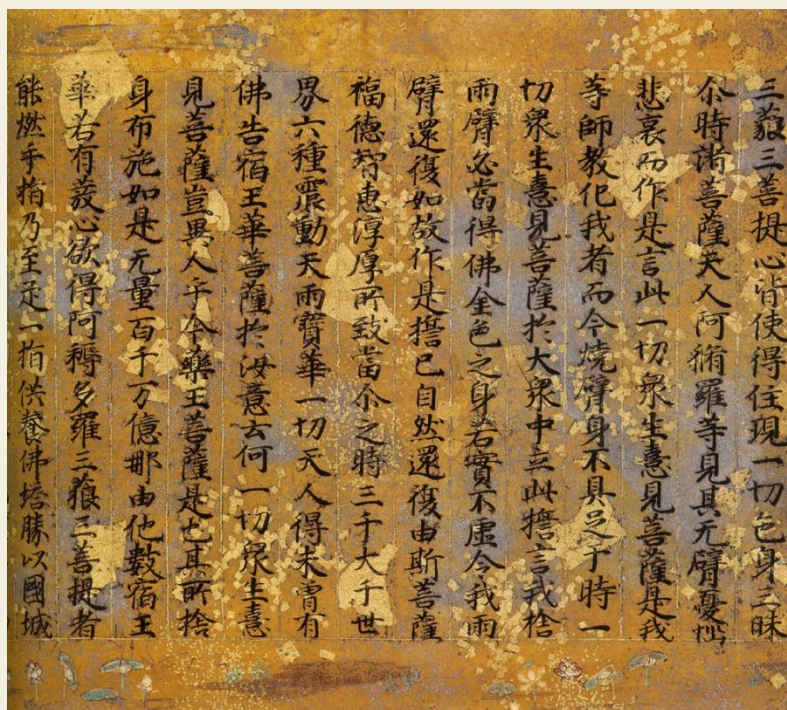 三藐三菩提心皆使得住現一切色身三昧
尒時諸菩薩天人阿脩羅等見其无臂憂惱
悲哀而作是言此一切衆生憙見菩薩是我
等師教化我者而今燒臂身不具足于時一
切衆生憙見菩薩於大衆中立此擔言我捨
兩臂必當得佛金色之身若實不虛令我兩
臂還復如故作是擔已自然還復由斯菩薩
福德智惠淳厚所致當尒之時三千大千世
界六種震動天雨寶華一切天人得未曾有
佛告宿王華菩薩於汝意云何一切衆生憙
見菩薩豈異人乎今藥王菩薩是也其所捨
身布施如是无量百千万億那由他數宿王
華若有發心欲得阿耨多羅三藐三菩提者
能燃手指乃至足一指供養佛塔勝以國城